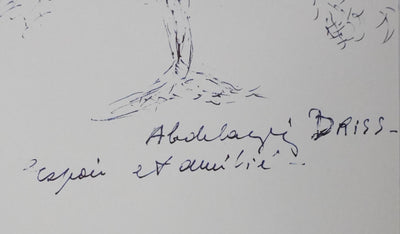 Abdelaziz DRISS -
"espoir et amitié" -